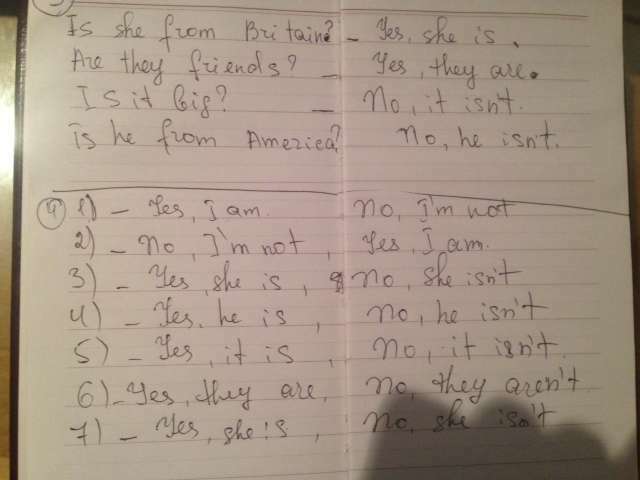 Is she from Britain? - Yes, she is.
Are they friends? - Yes, they are.
Is it big? - No, it isn't.
is he from America? No, he isn't.
4 1) - Yes, I am. No, I'm not
2) - No, I'm not, Yes, I am.
3) - Yes, she is, No, she isn't
4) - Yes, he is, No, he isn't
5) - Yes, it is, No, it isn't.
6) - Yes, they are, No, they aren't.
7) - Yes, she is, No, she isn't